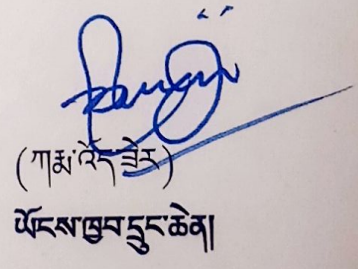 (ཀརྨ་འོད་ཟེར)
ཡོངས་ཁྱབ་དྲུང་ཆེན།